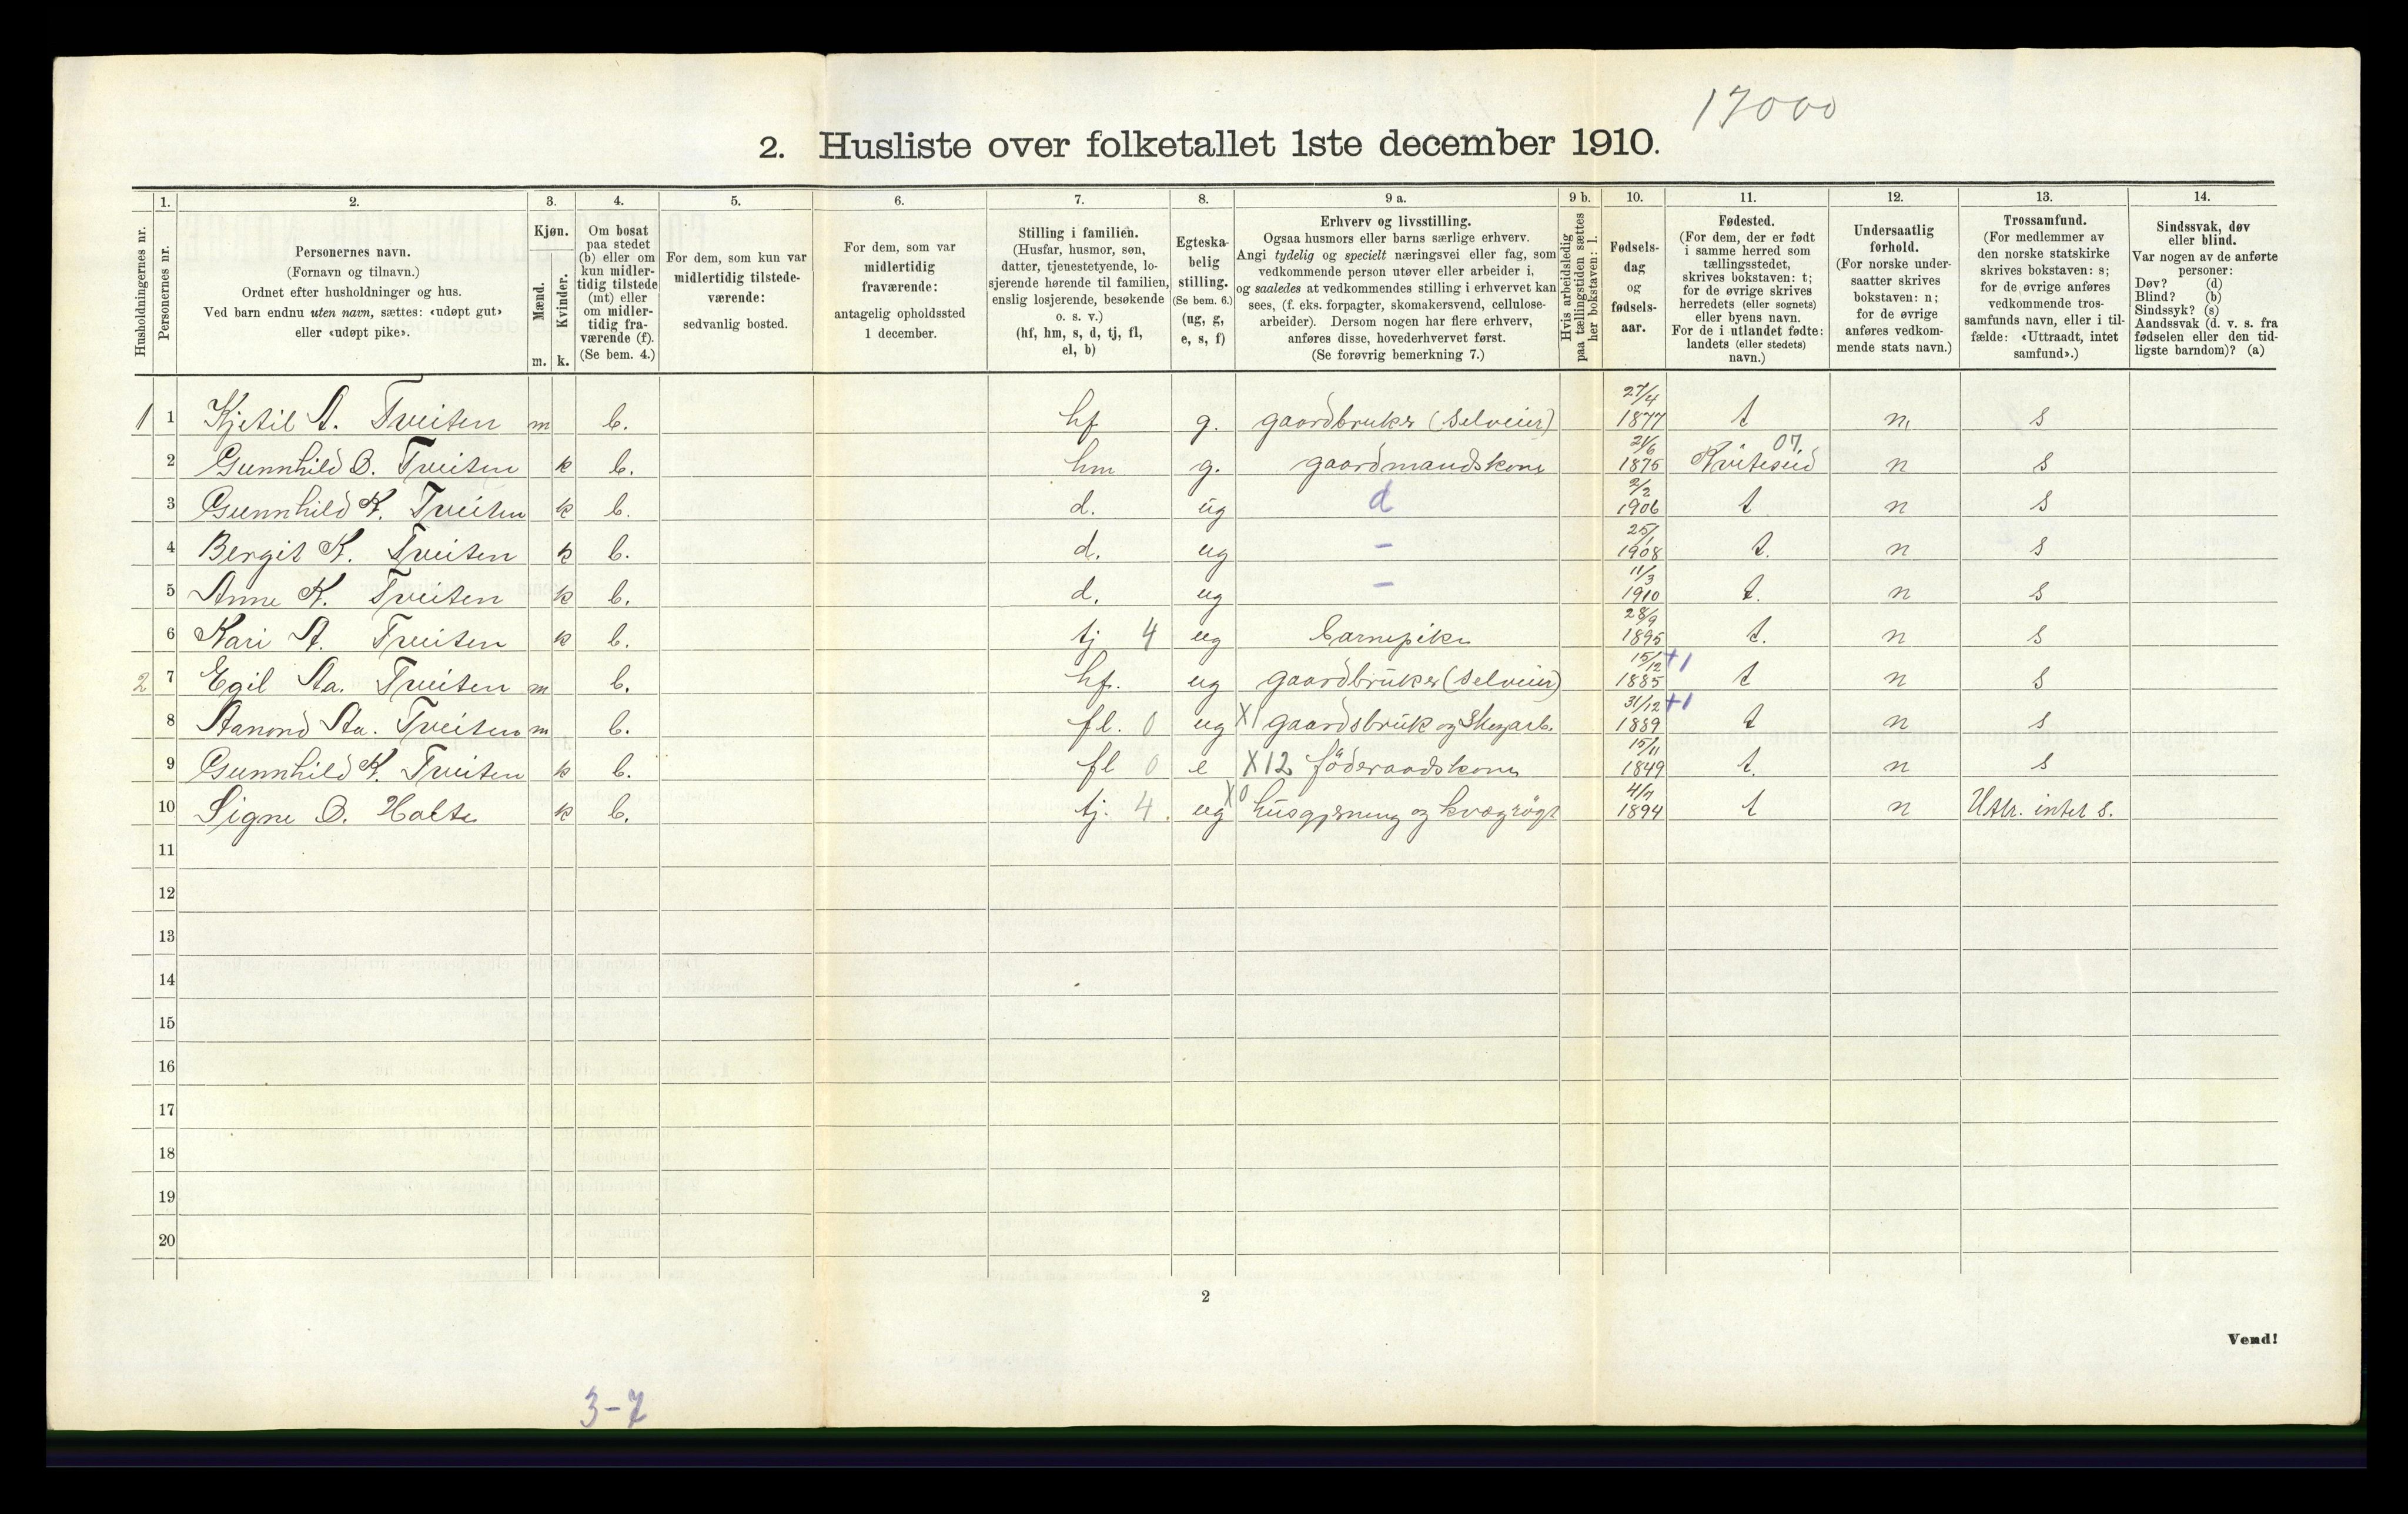 17000
2. Husliste over folketallet 1ste december 1910.
Husholdningernes nr.
1.
Personernes nr.
2.
Personernes navn.
(Fornavn og tilnavn.)
Ordnet efter husholdninger og hus.
Ved barn endnu uten navn, sættes: «udøpt gut»
eller «udøpt pike».
3.
Kjøn.
Mænd.
Kvinder.
m. k.
4.
Om bosat
paa stedet
(b) eller om
kun midler-
tidig tilstede
(mt) eller
om midler-
tidig fra-
værende (f).
(Se bem. 4.)
5.
For dem, som kun var
midlertidig tilstede-
værende:
sedvanlig bosted.
6.
For dem, som var
midlertidig
fraværende:
antagelig opholdssted
1 december.
7.
Stilling i familien.
(Husfar, husmor, søn,
datter, tjenestetyende, lo-
sjerende hørende til familien,
enslig losjerende, besøkende
o. s. v.)
(hf, hm, s, d, tj, fl,
el, b)
8.
Egteska-
belig
stilling.
(Se bem. 6.)
(ug, g,
e, s, f)
9 a.
Erhverv og livsstilling.
Ogsaa husmors eller barns særlige erhverv.
Angi tydelig og specielt næringsvei eller fag, som
vedkommende person utøver eller arbeider i,
og saaledes at vedkommendes stilling i erhvervet kan
sees, (f. eks. forpagter, skomakersvend, cellulose-
arbeider). Dersom nogen har flere erhverv,
anføres disse, hovederhvervet først.
(Se forøvrig bemerkning 7.)
9 b.
Hvis arbeidsledig
paa tællingstiden sættes
her bokstaven: l.
10.
Fødsels-
dag
og
fødsels-
aar.
11.
Fødested.
(For dem, der er født
i samme herred som
tællingsstedet,
skrives bokstaven: t;
for de øvrige skrives
herredets (eller sognets)
eller byens navn.
For de i utlandet fødte:
landets (eller stedets)
navn.)
12.
Undersaatlig
forhold.
(For norske under-
saatter skrives
bokstaven: n;
for de øvrige
anføres vedkom-
mende stats navn.)
13.
Trossamfund.
(For medlemmer av
den norske statskirke
skrives bokstaven: s;
for de øvrige anføres
vedkommende tros-
samfunds navn, eller i til-
fælde: «Uttraadt, intet
samfund».)
14.
Sindssvak, døv
eller blind.
Var nogen av de anførte
personer:
Døv? (d)
Blind? (b)
Sindssyk? (s)
Aandssvak (d. v. s. fra
fødselen eller den tid-
ligste barndom)? (a)
1 1 Kjetil A. Tveiten m b. hf g. gaardbruker (Selveier) 27/4 1877 t n, s
2 Gunnhild B. Tveiten k b. hm g. gaardmandskone 21/6 1875 Kviteseid 07 n s
3 Gunnhild K. Tveiten k b. d. ug d 2/2 1906 t n s
4 Bergit K. Tveiten k b. d. ug – 25/1 1908 t. n s
5 Anne K. Tveiten k b. d. ug – 11/3 1910 t. n s
6 Kari A. Tveiten k b. tj 4 ug barnepike 28/9 1895 t. n s
2 7 Egil Aa. Tveiten m b. hf. ug gaardbruker (Selveier) 15/12 1885 +1 t n s
8 Aanond Aa. Tveiten m b. fl. 0 ug X1 gaardsbruk og Skogarb. 31/12 1889 +1 t n s
9 Gunnhild K. Tveiten k b. fl 0 e X12 föderaadskone 15/11 1849 t. n s
10 Signe O. Holte k b. tj. 4. ug X0 husgjerning og kvægrögt 4/7 1894 t n Uttr. intet s.
11
12
13
14
15
16
17
18
19
20
2
Vend!
3-7